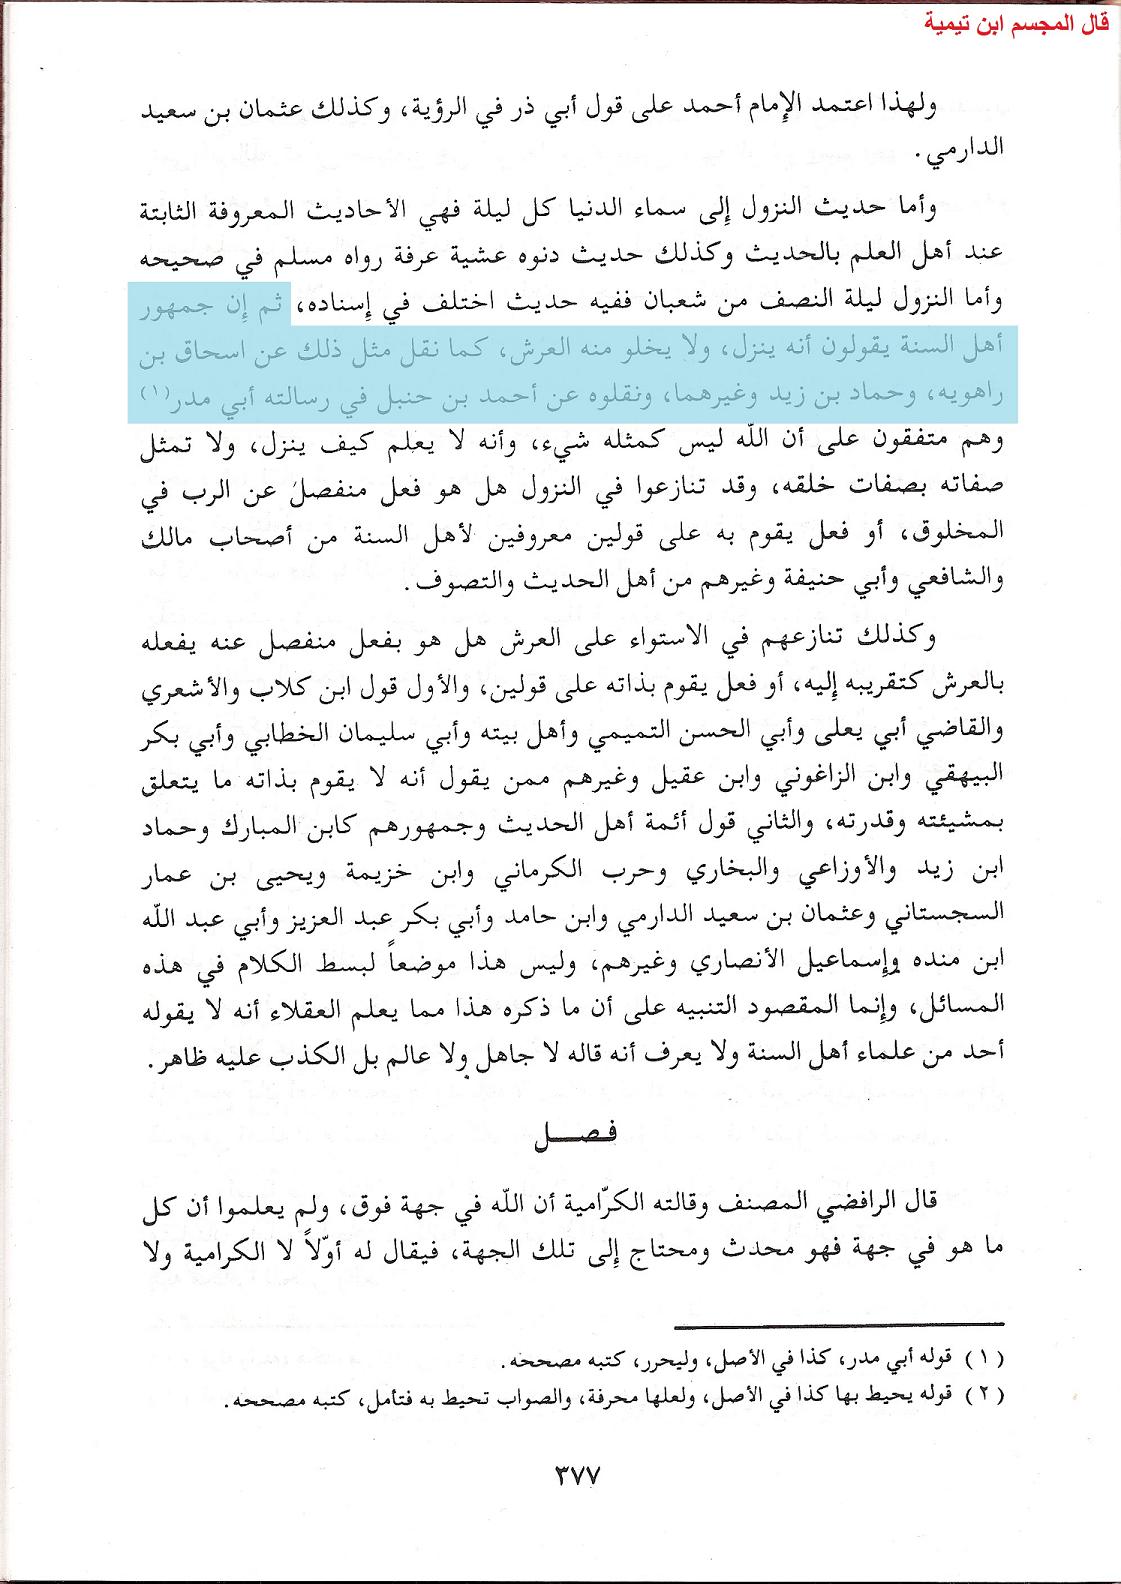 قال المجسم ابن تيمية
ولهذا اعتمد الإمام أحمد على قول أبي ذر في الرؤية، وكذلك عثمان بن سعيد
الدارمي.
وأما حديث النزول إلى سماء الدنيا كل ليلة فهي الأحاديث المعروفة الثابتة
عند أهل العلم بالحديث وكذلك حديث دنوه عشية عرفة رواه مسلم في صحيحه
وأما النزول ليلة النصف من شعبان ففيه حديث اختلف في إسناده، ثم إن جمهور
أهل السنة يقولون أنه ينزل، ولا يخلو منه العرش، كما نقل مثل ذلك عن اسحاق بن
راهويه، وحماد بن زيد وغيرهما، ونقلوه عن أحمد بن حنبل في رسالته أبي مدر(١)
وهم متفقون على أن الله ليس كمثله شيء، وأنه لا يعلم كيف ينزل، ولا تمثل
صفاته بصفات خلقه، وقد تنازعوا في النزول هل هو فعل منفصلُ عن الرب في
المخلوق، أو فعل يقوم به على قولين معروفين لأهل السنة من أصحاب مالك
والشافعي وأبي حنيفة وغيرهم من أهل الحديث والتصوف.
وكذلك تنازعهم في الاستواء على العرش هل هو بفعل منفصل عنه يفعله
بالعرش كتقريبه إليه، أو فعل يقوم بذاته على قولين، والأول قول ابن كلاب والأشعري
والقاضي أبي يعلى وأبي الحسن التميمي وأهل بيته وأبي سليمان الخطابي وأبي بكر
البيهقي وابن الزاغوني وابن عقيل وغيرهم ممن يقول أنه لا يقوم بذاته ما يتعلق
بمشيئته وقدرته، والثاني قول أئمة أهل الحديث وجمهورهم كابن المبارك وحماد
ابن زيد والأوزاعي والبخاري وحرب الكرماني وابن خزيمة ويحيى بن عمار
السجستاني وعثمان بن سعيد الدارمي وابن حامد وأبي بكر عبد العزيز وأبي عبد الله
ابن منده وإسماعيل الأنصاري وغيرهم، وليس هذا موضعاً لبسط الكلام في هذه
المسائل، وإنما المقصود التنبيه على أن ما ذكره هذا مما يعلم العقلاء أنه لا يقوله
أحد من علماء أهل السنة ولا يعرف أنه قاله لا جاهل ولا عالم بل الكذب عليه ظاهر.
فصل
قال الرافضي المصنف وقالته الكرّامية أن الله في جهة فوق، ولم يعلموا أن كل
ما هو في جهة فهو محدث ومحتاج إلى تلك الجهة، فيقال له أوّلاً لا الكرامية ولا
(١) قوله أبي مدر، كذا في الأصل، وليحرر، كتبه مصححه.
(٢) قوله يحيط بها كذا في الأصل، ولعلها محرفة، والصواب تحيط به فتأمل، كتبه مصححه.
٣٧٧